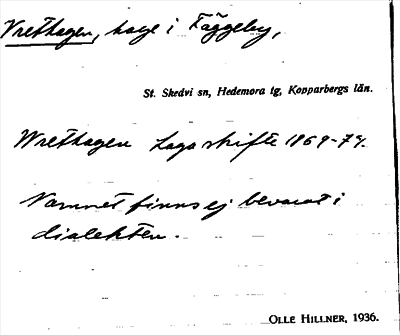 Vrethagen, hage i Fäggeby,
St. Skedvi sn, Hedemora tg, Kopparbergs län.
Wrethagen Laga skifte 1869-79.
Namnet finns ej bevarat i
dialekten.
OLLE HILLNER, 1936.